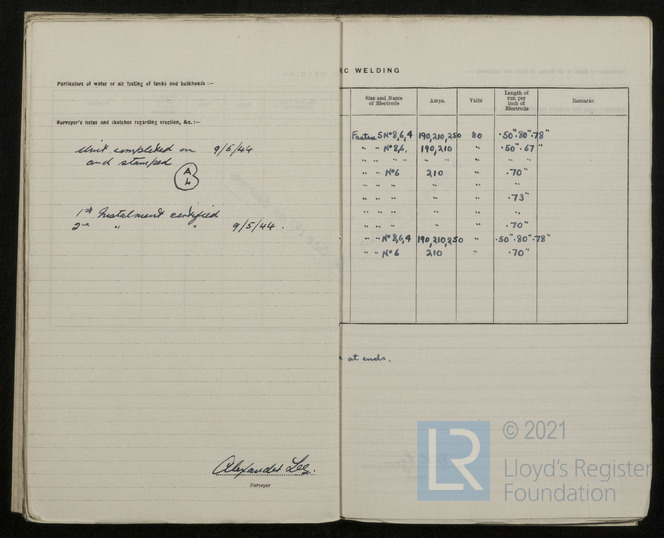 Particulars of water or air testing of tanks and bulkheads :—
Surveyor's notes and sketches regarding erection, &c. :—
Unit completed on 9/5/44
and stamped
A
L
1st Instalment certified
2nd " " 9/5/44.
Alexander Lee.
Surveyor
IC WELDING
Size and Name of Electrode Amps. Volts Length of run per inch of Electrode Remarks
Fastex S Nº 8,6,4 190,210,250 80 .50" .80" .78"
" " Nº 8,6. 190,210 " .50" .67"
" " " " " " " "
" " Nº 6 210 " .70"
" " " " " "
" " " " .73"
" " " " " "
" " " " " .70"
" " Nº 8,6,4 190,210,250 " .50" .80" .78"
" " Nº 6 210 " .70"
at ends.
LR
© 2021
Lloyd's Register
Foundation